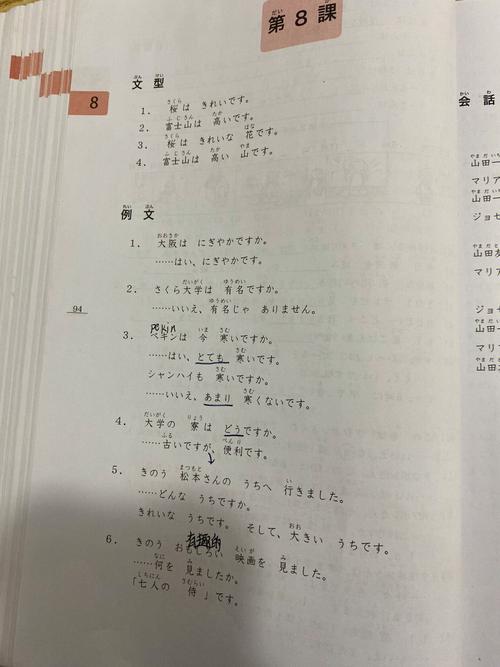 第8課
8
文型
1. 桜は きれいです。
2. 富士山は 高いです。
3. 桜は きれいな 花です。
4. 富士山は 高い 山です。
例文
1. 大阪は にぎやかですか。
……はい、にぎやかです。
2. さくら大学は 有名ですか。
……いいえ、有名じゃ ありません。
94
pekin
3. ペキンは 今 寒いですか。
……はい、とても 寒いです。
シャンハイも 寒いですか。
……いいえ、あまり 寒くないです。
4. 大学の 寮は どうですか。
……古いですが、便利です。
5. きのう 松本さんの うちへ 行きました。
……どんな うちですか。
きれいな うちです。 そして、大きい うちです。
有趣的
6. きのう おもしろい 映画を 見ました。
……何を 見ましたか。
「七人の 侍」です。
会話
山田一
マリア
山田一
ジョセ
山田友
マリア
ジョセ
山田一
マリア
山田